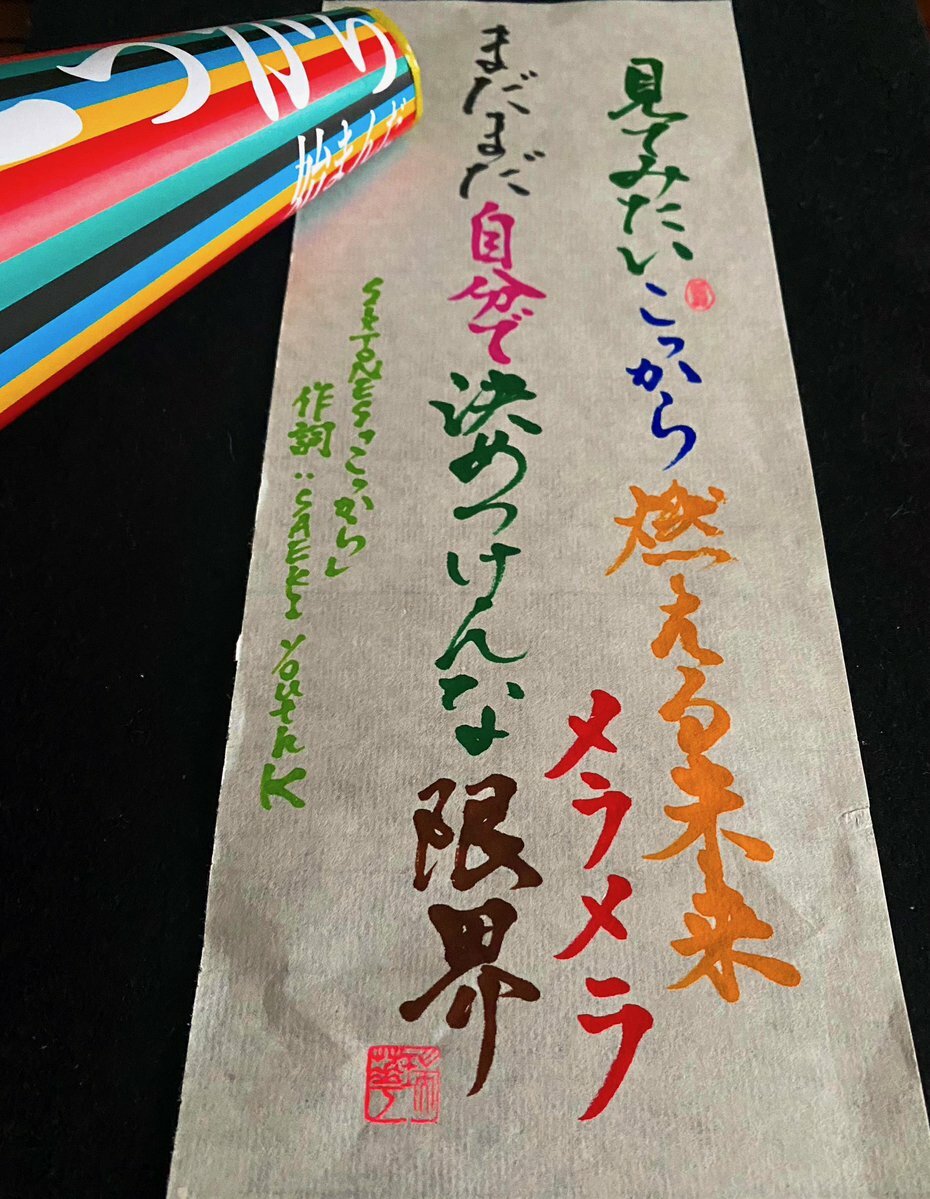 見てみたいこっから燃える未来
メラメラ
まだまだ自分で決めつけんな限界
SixTONES「こっから」
作詞:SAEKI youthK
こっから
始まんだ